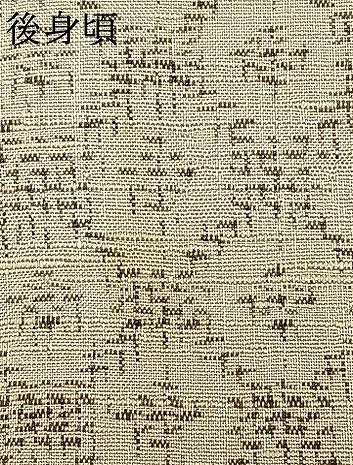 後身頃